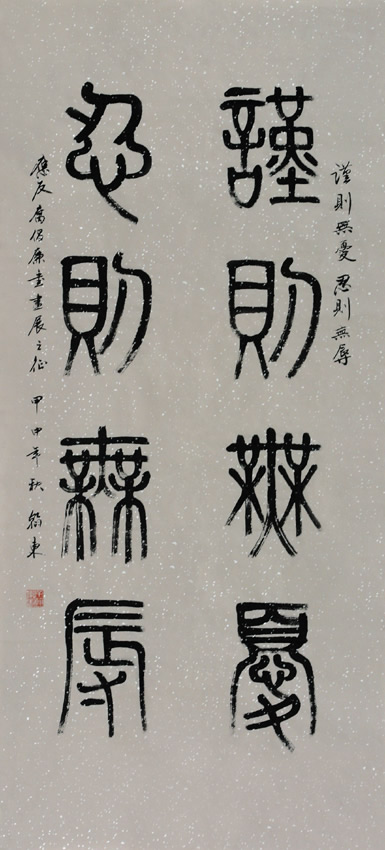 謹則無憂 忍則無辱
謹則無憂
忍則無辱
應反腐倡廉書畫展之征 甲申年秋 東